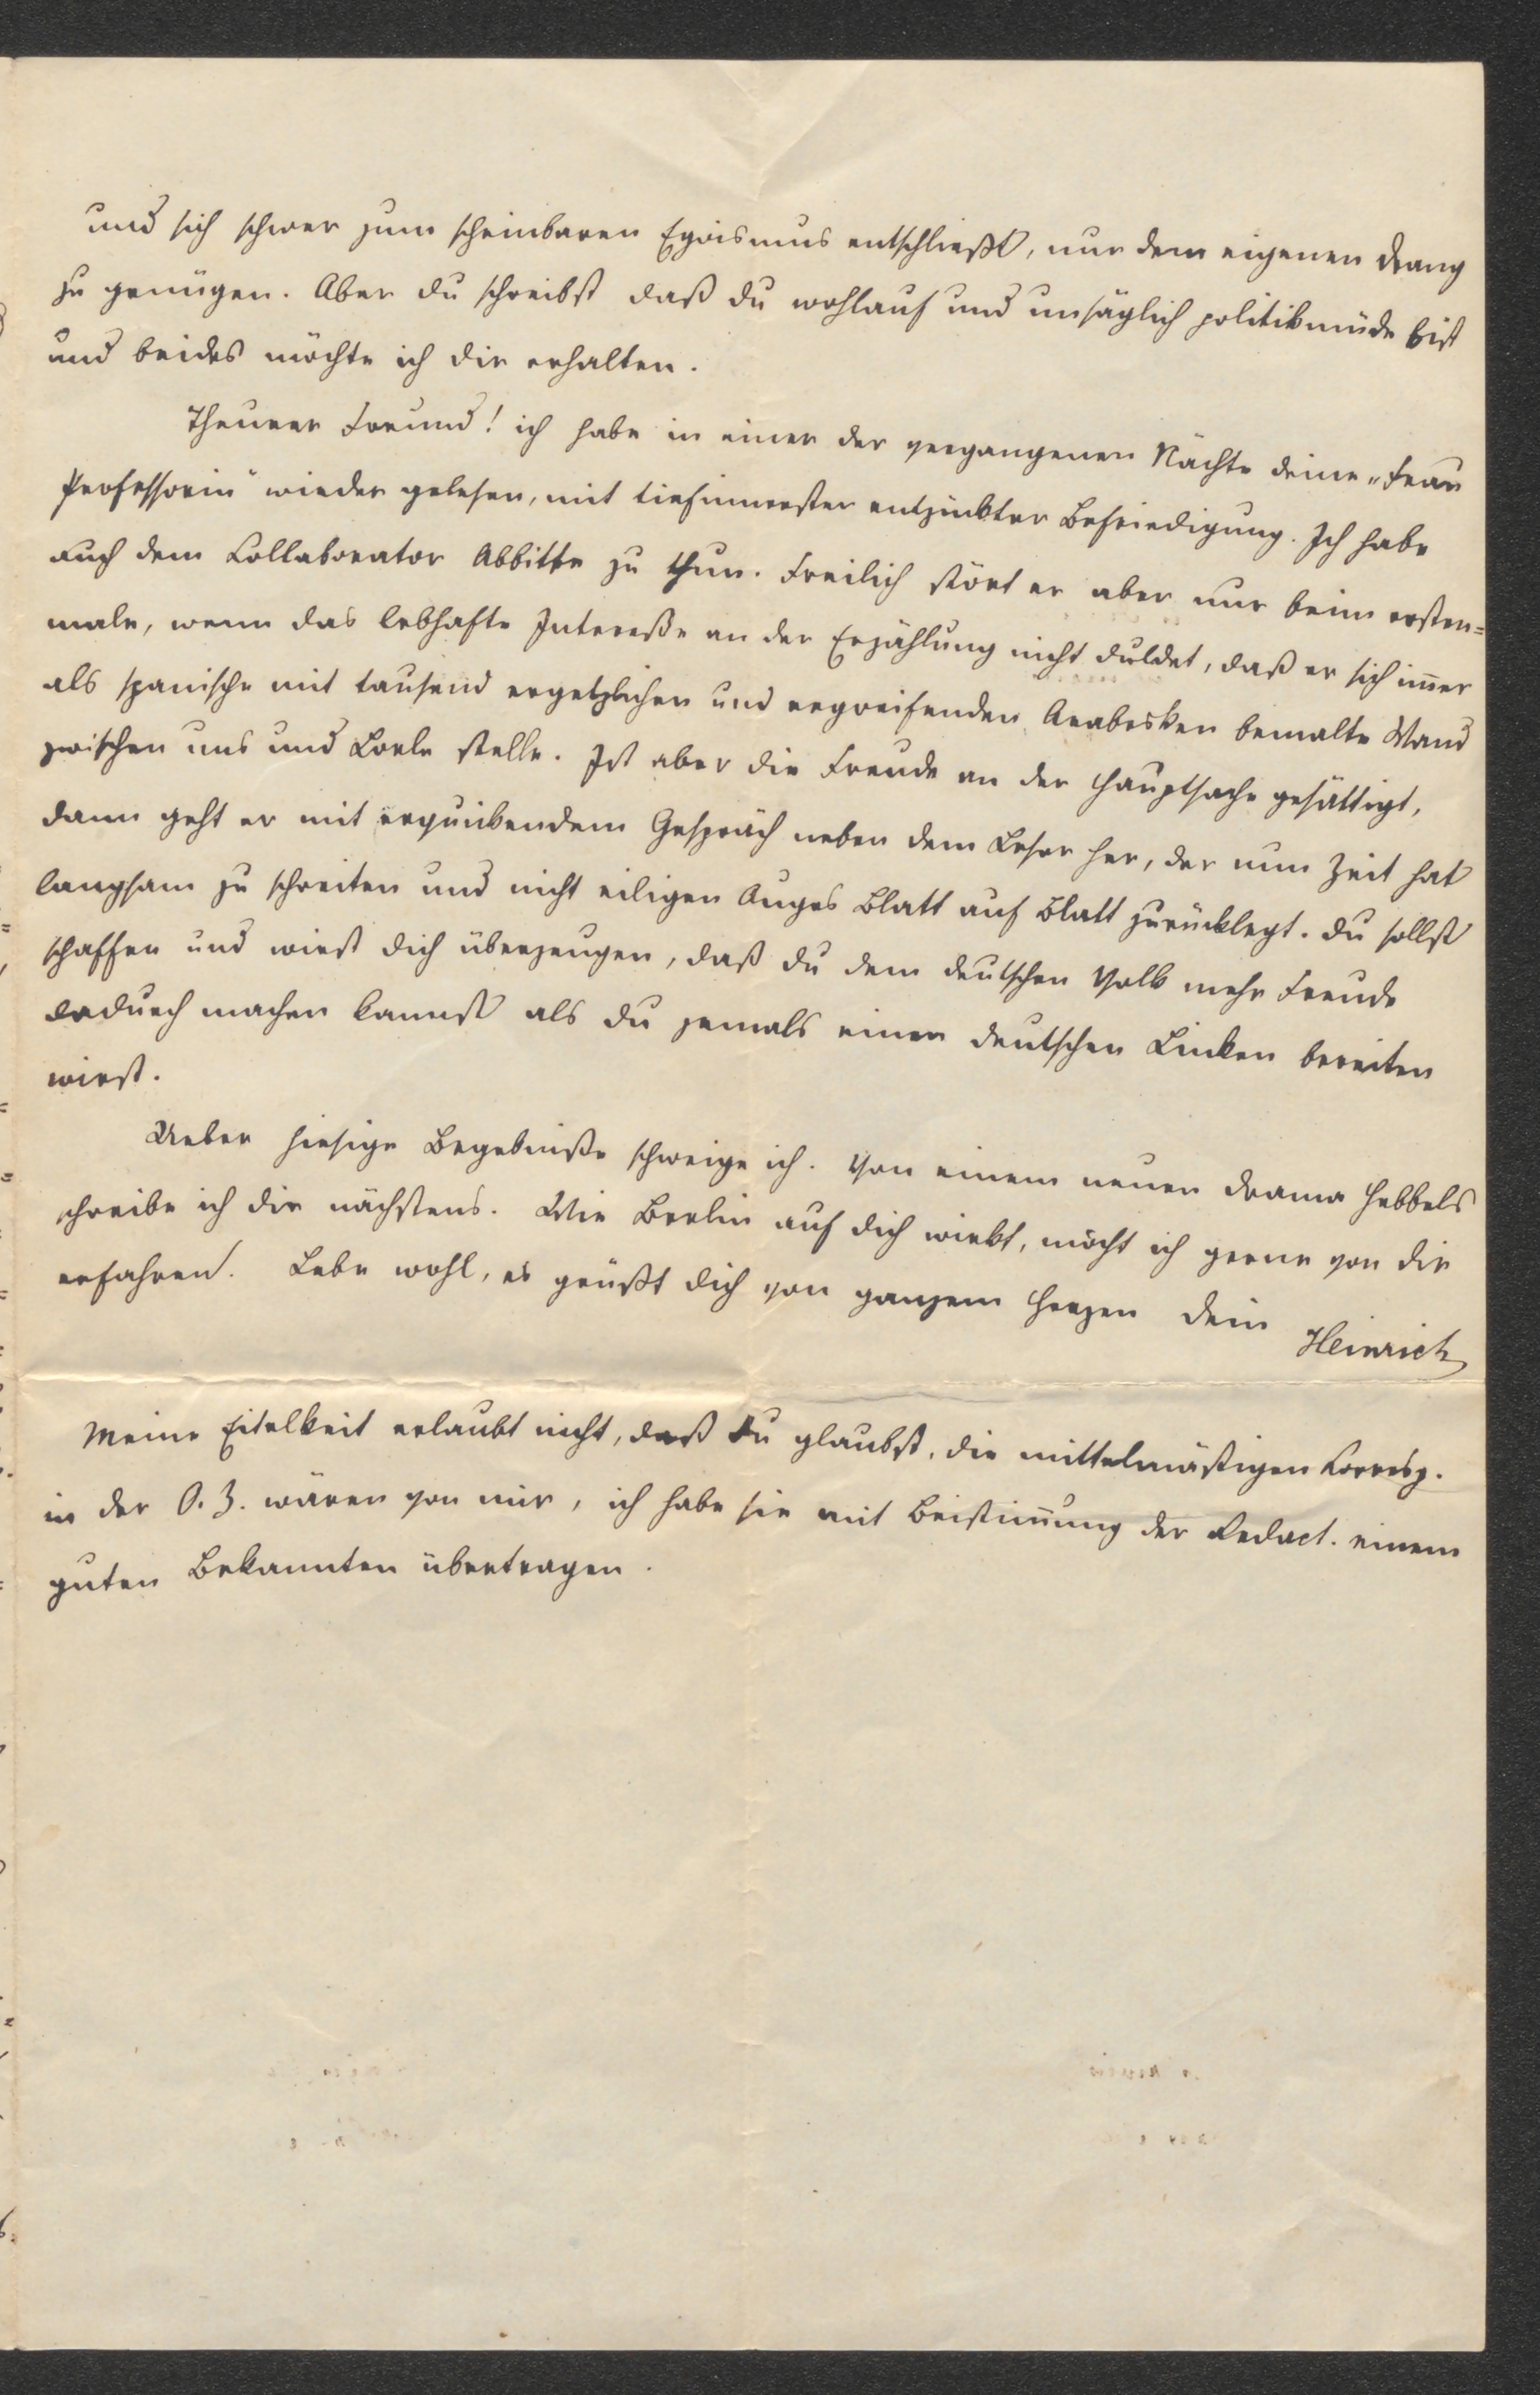 und sich schwer zum scheinbaren Egoismus entschließt, nur dem eigenen Drang
zu genügen. Aber du schreibst daß du wohlauf und unsäglich politikmüde bist
und beides möchte ich dir erhalten.
Theurer Freund! ich habe in einer der vergangenen Nächte deine „Frau
Professorin" wieder gelesen, mit tiefinnerster entzückter Befriedigung. Ich habe
auch dem Collaborator Abbitte zu thun. Freilich stört er aber nur beim ersten=
male, wenn das lebhafte Intereße an der Erzählung nicht duldet, daß er sich im̅er
als spanische mit tausend ergetzlichen und ergreifenden Arabesken bemalte Wand
zwischen uns und Lorle stelle. Ist aber die Freude an der Hauptsache gesättigt,
dann geht er mit erquickendem Gespräch neben dem Leser her, der nun Zeit hat
langsam zu schreiten und nicht eiligen Auges Blatt auf Blatt zurücklegt. Du sollst
schaffen und wirst dich überzeugen, daß du dem deutschen Volk mehr Freude
dadurch machen kannst als du jemals einer deutschen Linken bereiten
wirst.
Ueber hiesige Begebniße schweige ich. Von einem neuen Drama Hebbels
schreibe ich dir nächstens. Wie Berlin auf dich wirkt, möcht ich gerne von dir
erfahren. Lebe wohl, es grüßt dich von ganzem Herzen dein
Heinrich
Meine Eitelkeit erlaubt nicht, daß du glaubst, die mittelmäßigen Corresp.
in der O. Z. wären von mir, ich habe sie mit Beistim̅ung der Redact. einem
guten Bekannten übertragen.